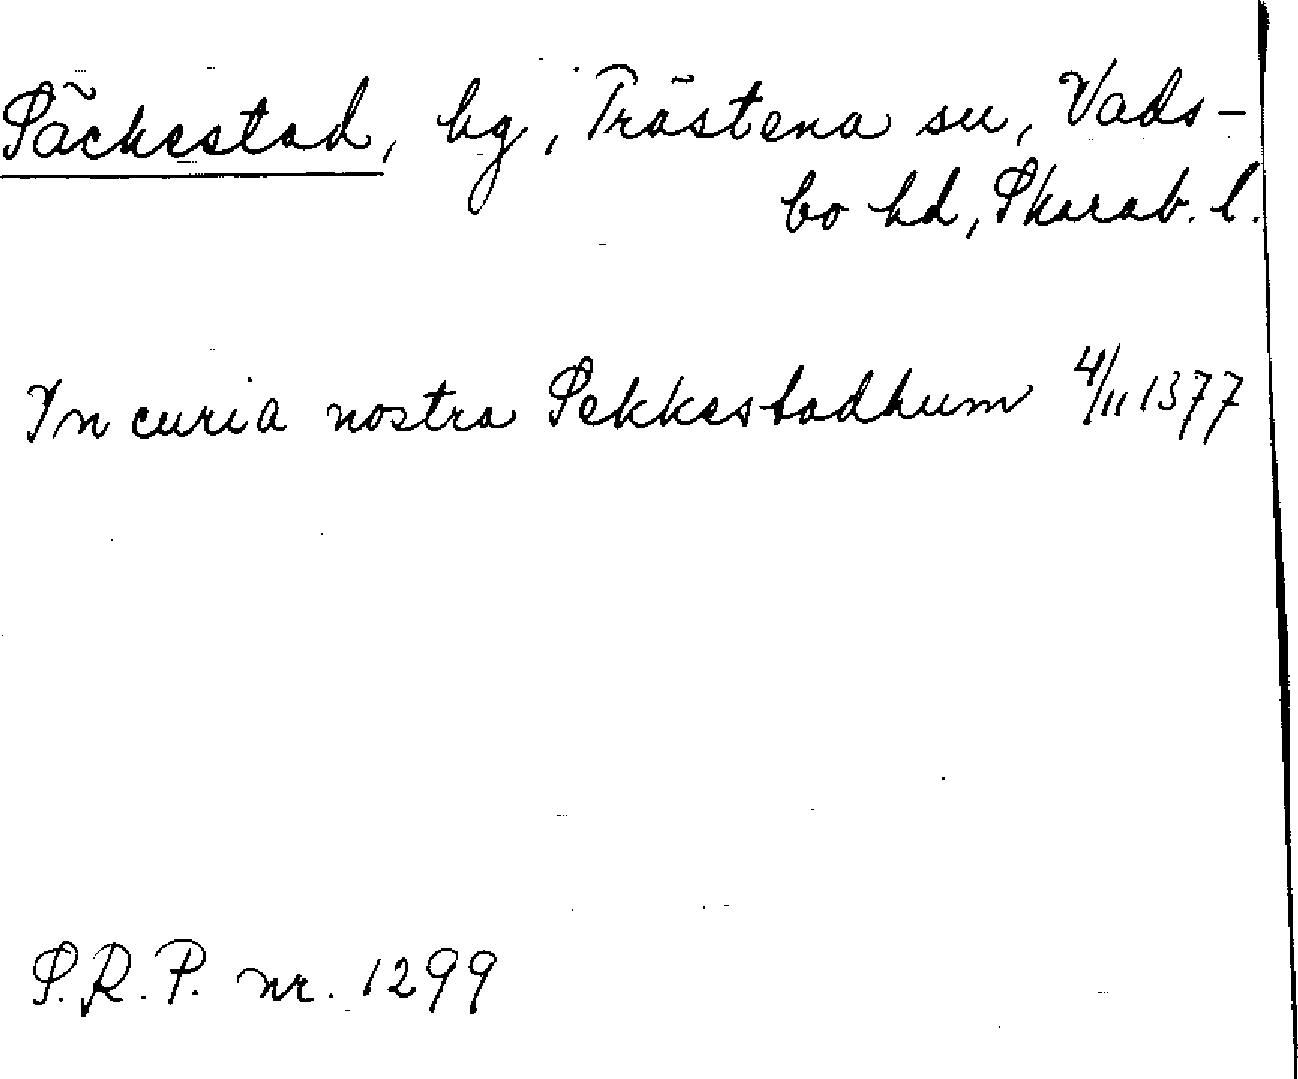 Säckestad, hg, Trästena sn, Vads-
bo hd, Skarab. l.
In curia nostra Sekkestadhum 4/11 1377
S.R.P. nr. 1299